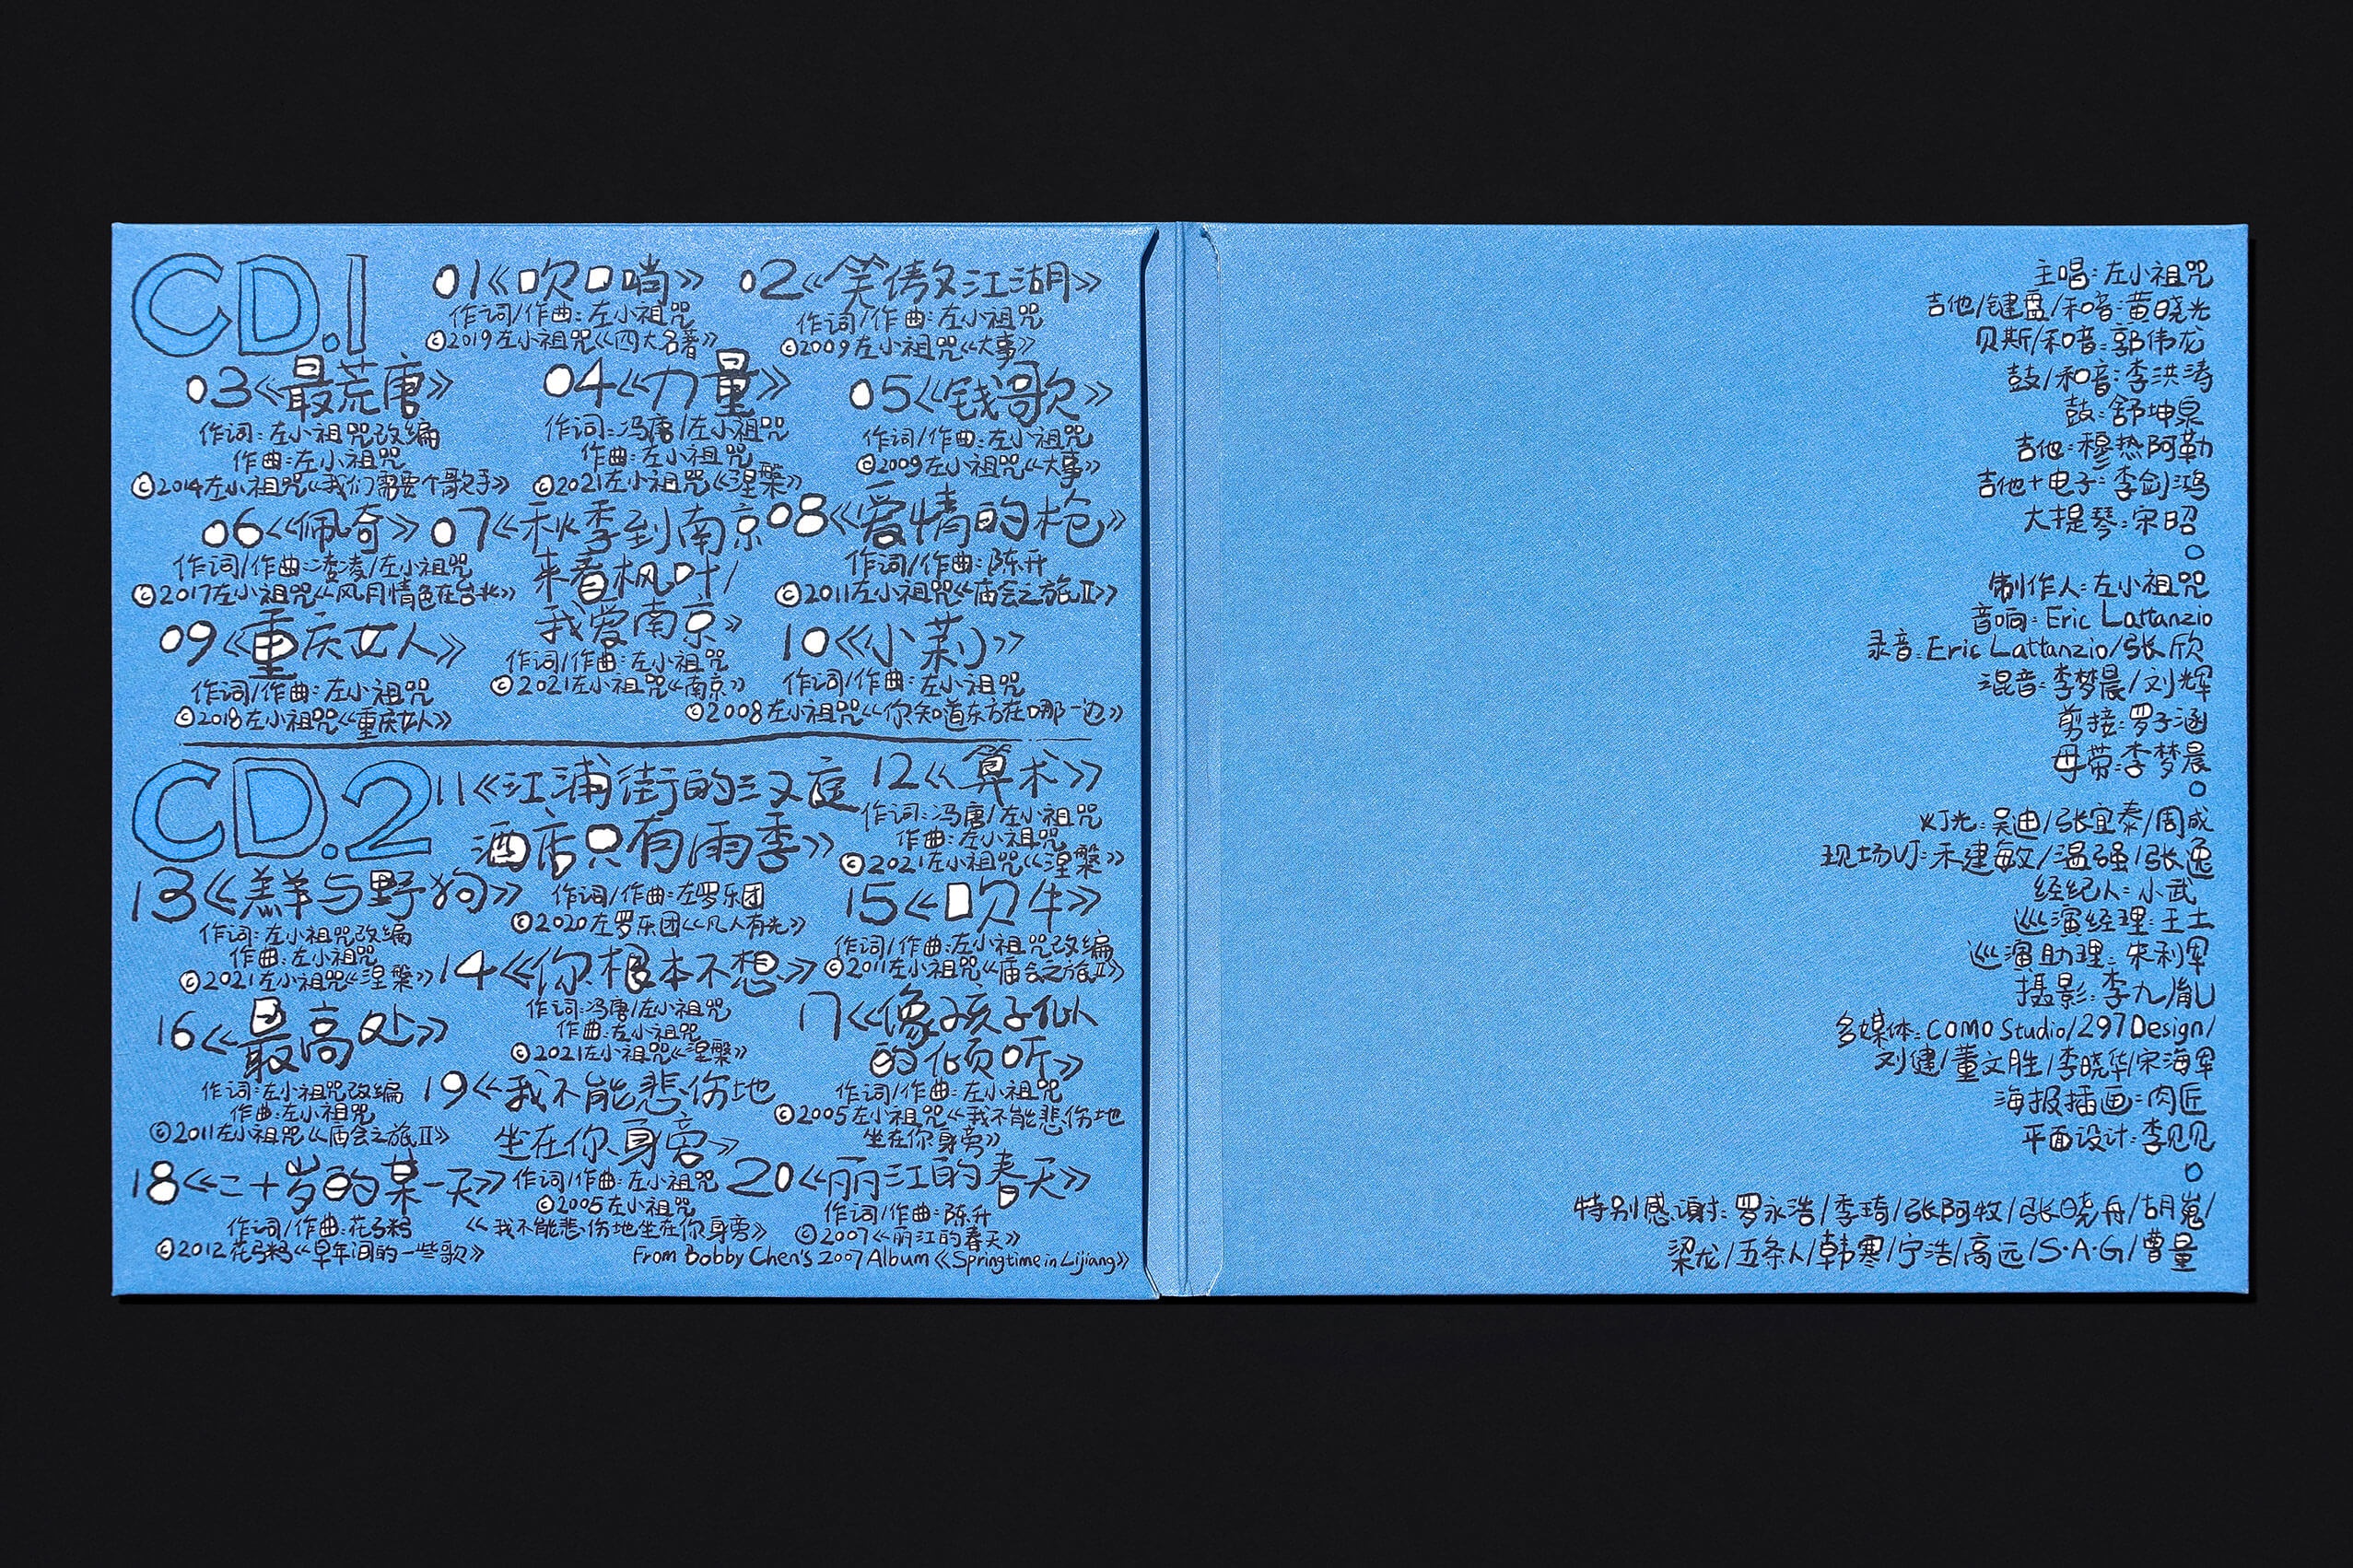 CD.1
01《吹口哨》
作词/作曲:左小祖咒
©2019左小祖咒《四大名著》
02《笑傲江湖》
作词/作曲:左小祖咒
©2009左小祖咒《大事》
03《最荒唐》
作词:左小祖咒改编
作曲:左小祖咒
©2014左小祖咒《我们需要个歌手》
04《力量》
作词:冯唐/左小祖咒
作曲:左小祖咒
©2021左小祖咒《涅槃》
05《钱歌》
作词/作曲:左小祖咒
©2009左小祖咒《大事》
06《佩奇》
作词/作曲:李凌/左小祖咒
©2017左小祖咒《风月情色在台北》
07《秋季到南京
来看枫叶/
我爱南京》
作词/作曲:左小祖咒
©2021左小祖咒《南京》
08《爱情的枪》
作词/作曲:陈升
©2011左小祖咒《庙会之旅II》
09《重庆女人》
作词/作曲:左小祖咒
©2018左小祖咒《重庆女人》
10《小莉》
作词/作曲:左小祖咒
©2008左小祖咒《你知道东方在哪一边》
CD.2
11《江浦街的汉庭
酒店只有雨季》
作词/作曲:左罗乐团
©2020左罗乐团《凡人有光》
12《算术》
作词:冯唐/左小祖咒
作曲:左小祖咒
©2021左小祖咒《涅槃》
13《羔羊与野狗》
作词:左小祖咒改编
作曲:左小祖咒
©2021左小祖咒《涅槃》
14《你根本不想》
作词:冯唐/左小祖咒
作曲:左小祖咒
©2021左小祖咒《涅槃》
15《吹牛》
作词/作曲:左小祖咒改编
©2011左小祖咒《庙会之旅II》
16《最高处》
作词:左小祖咒改编
作曲:左小祖咒
©2011左小祖咒《庙会之旅II》
17《像孩子似
的倾听》
作词/作曲:左小祖咒
©2005左小祖咒《我不能悲伤地
坐在你身旁》
18《二十岁的某一天》
作词/作曲:花
©2012花《早年间的一些歌》
19《我不能悲伤地
坐在你身旁》
作词/作曲:左小祖咒
©2005左小祖咒
《我不能悲伤地坐在你身旁》
20《丽江的春天》
作词/作曲:陈升
©2007《丽江的春天》
From Bobby Chen's 2007 Album《Springtime in Lijiang》
主唱:左小祖咒
吉他/键盘/和音:黄晓光
贝斯/和音:郭伟龙
鼓/和音:李洪涛
鼓:舒坤泉
吉他:穆热阿勒
吉他+电子:李剑鸿
大提琴:宋昭
制作人:左小祖咒
音响:Eric Lattanzio
录音:Eric Lattanzio/张欣
混音:李梦晨/刘辉
剪接:罗子涵
母带:李梦晨
灯光:吴迪/张宜泰/周成
现场VJ:禾建敏/温强/张逸
经纪人:小武
巡演经理:王土
巡演助理:朱利军
摄影:李九胤
多媒体:COMO Studio/297Design/
刘健/董文胜/李晓华/宋海军
海报插画:肉匠
平面设计:李见见
特别感谢:罗永浩/季琦/张阿牧/张晓舟/胡嵬/
梁龙/五条人/韩寒/宁浩/高远/S·A·G/曹量